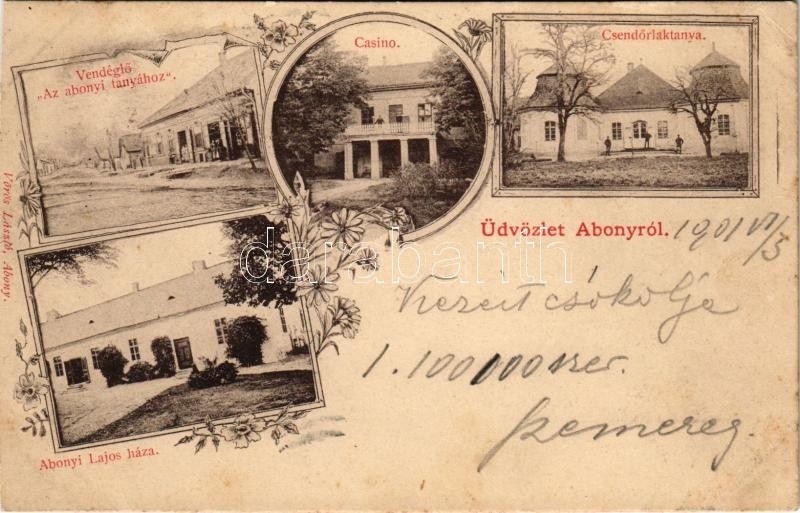 Vendéglő
„Az abonyi tanyához“.
Casino.
Csendőrlaktanya.
Vörös László, Abony.
Üdvözlet Abonyról. 1901 VI/3
darabanth
Kezeit csókolja
1.100000szer.
Abonyi Lajos háza.